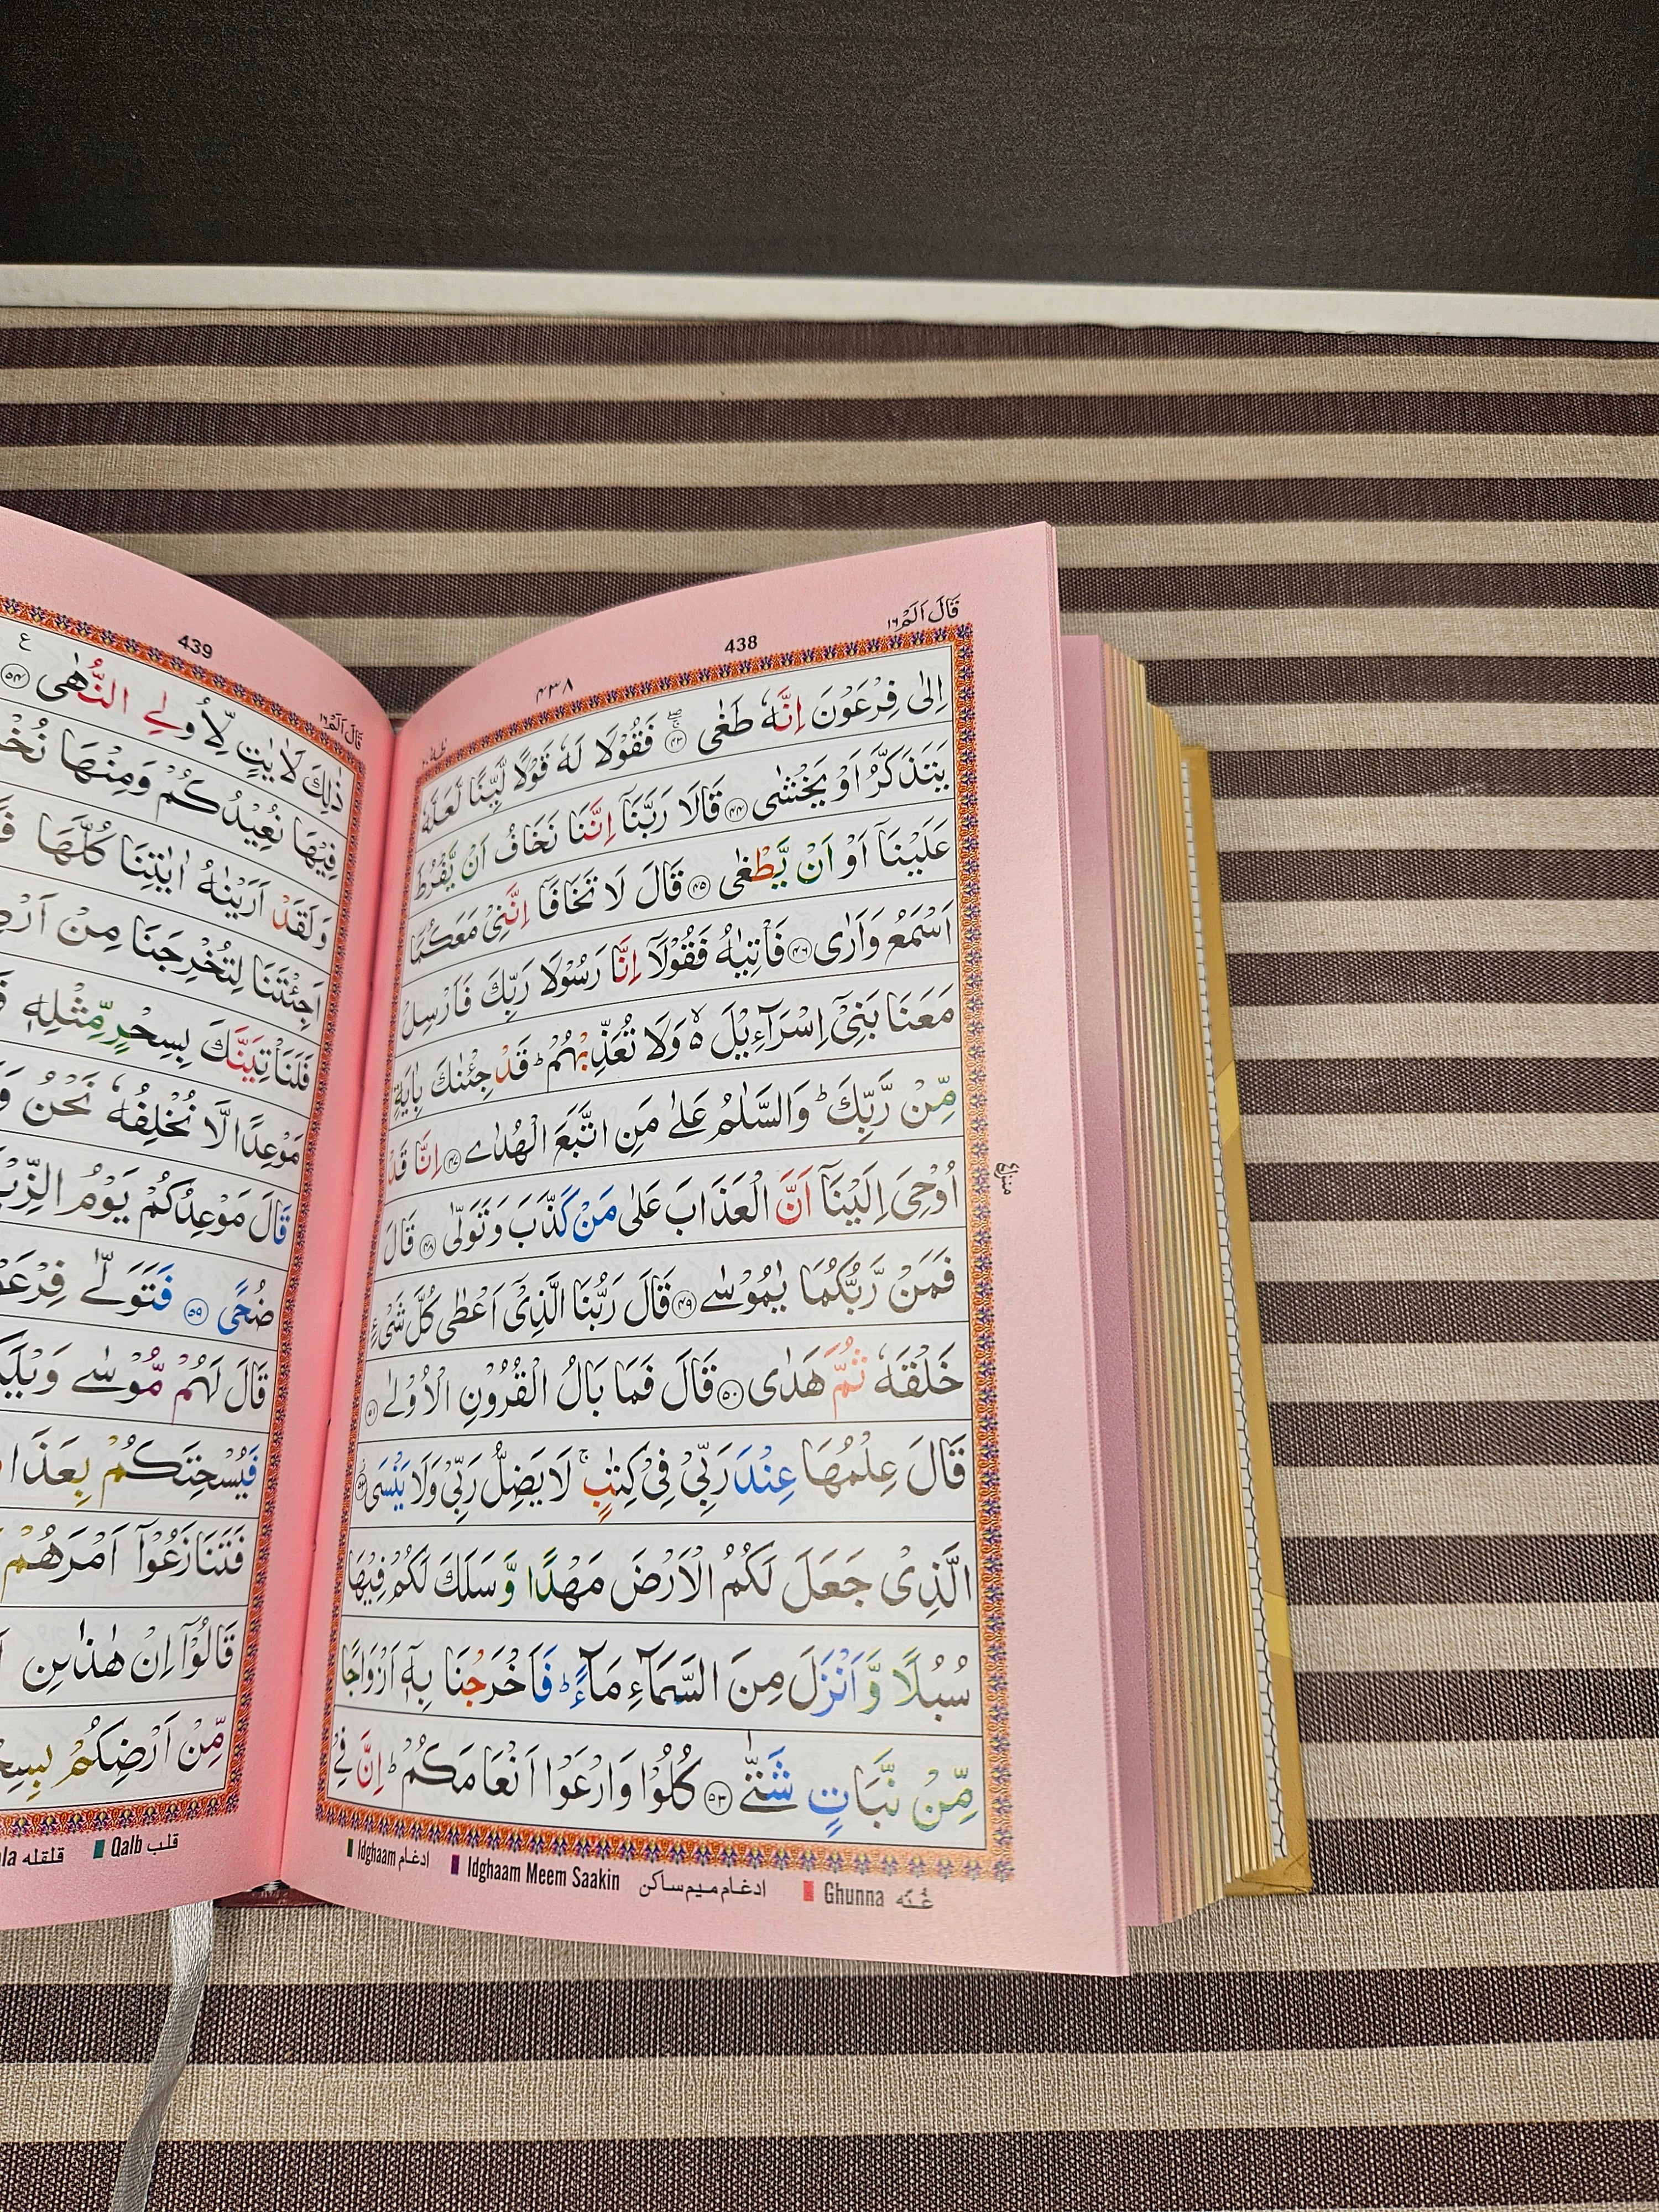 قَالَ اَلَمْ ١٦
438
٤٣٨
اِلٰى فِرْعَوْنَ اِنَّهٗ طَغٰى ۝٤٣ فَقُوْلَا لَهٗ قَوْلًا لَّيِّنًا لَّعَلَّهٗ
يَتَذَكَّرُ اَوْ يَخْشٰى ۝٤٤ قَالَا رَبَّنَآ اِنَّنَا نَخَافُ اَنْ يَّفْرُطَ
عَلَيْنَآ اَوْ اَنْ يَّطْغٰى ۝٤٥ قَالَ لَا تَخَافَآ اِنَّنِيْ مَعَكُمَآ
اَسْمَعُ وَاَرٰى ۝٤٦ فَاْتِيٰهُ فَقُوْلَآ اِنَّا رَسُوْلَا رَبِّكَ فَاَرْسِلْ
مَعَنَا بَنِيْٓ اِسْرَآءِيْلَ ۥۙ وَلَا تُعَذِّبْهُمْ ؕ قَدْ جِئْنٰكَ بِاٰيَةٍ
مِّنْ رَّبِّكَ ؕ وَالسَّلٰمُ عَلٰى مَنِ اتَّبَعَ الْهُدٰى ۝٤٧ اِنَّا قَدْ
اُوْحِيَ اِلَيْنَآ اَنَّ الْعَذَابَ عَلٰى مَنْ كَذَّبَ وَتَوَلّٰى ۝٤٨ قَالَ
فَمَنْ رَّبُّكُمَا يٰمُوْسٰى ۝٤٩ قَالَ رَبُّنَا الَّذِيْٓ اَعْطٰى كُلَّ شَيْءٍ
خَلْقَهٗ ثُمَّ هَدٰى ۝٥٠ قَالَ فَمَا بَالُ الْقُرُوْنِ الْاُوْلٰى ۝٥١
قَالَ عِلْمُهَا عِنْدَ رَبِّيْ فِيْ كِتٰبٍ ۚ لَا يَضِلُّ رَبِّيْ وَلَا يَنْسَى ۝٥٢
الَّذِيْ جَعَلَ لَكُمُ الْاَرْضَ مَهْدًا وَّسَلَكَ لَكُمْ فِيْهَا
سُبُلًا وَّاَنْزَلَ مِنَ السَّمَآءِ مَآءً ؕ فَاَخْرَجْنَا بِهٖٓ اَزْوَاجًا
مِّنْ نَّبَاتٍ شَتّٰى ۝٥٣ كُلُوْا وَارْعَوْا اَنْعَامَكُمْ ؕ اِنَّ فِيْ
منزل٤
Ghunna غُنّه
Idghaam Meem Saakin ادغام ميم ساكن
Idghaam ادغام
439
قَالَ اَلَمْ ١٦
ع
ذٰلِكَ لَاٰيٰتٍ لِّاُولِي النُّهٰى ۝٥٤
فِيْهَا نُعِيْدُكُمْ وَمِنْهَا
وَلَقَدْ اَرَيْنٰهُ اٰيٰتِنَا كُلَّهَا
اَجِئْتَنَا لِتُخْرِجَنَا مِنْ
فَلَنَاْتِيَنَّكَ بِسِحْرٍ مِّثْلِهٖ
مَوْعِدًا لَّا نُخْلِفُهٗ نَحْنُ
قَالَ مَوْعِدُكُمْ يَوْمُ
ضُحًى ۝٥٩ فَتَوَلّٰى
قَالَ لَهُمْ مُّوْسٰى
فَيُسْحِتَكُمْ
فَتَنَازَعُوْٓا اَمْرَهُمْ
قَالُوْٓا اِنْ هٰذٰىنِ
مِّنْ اَرْضِكُمْ
Qalb قلب
قلقله